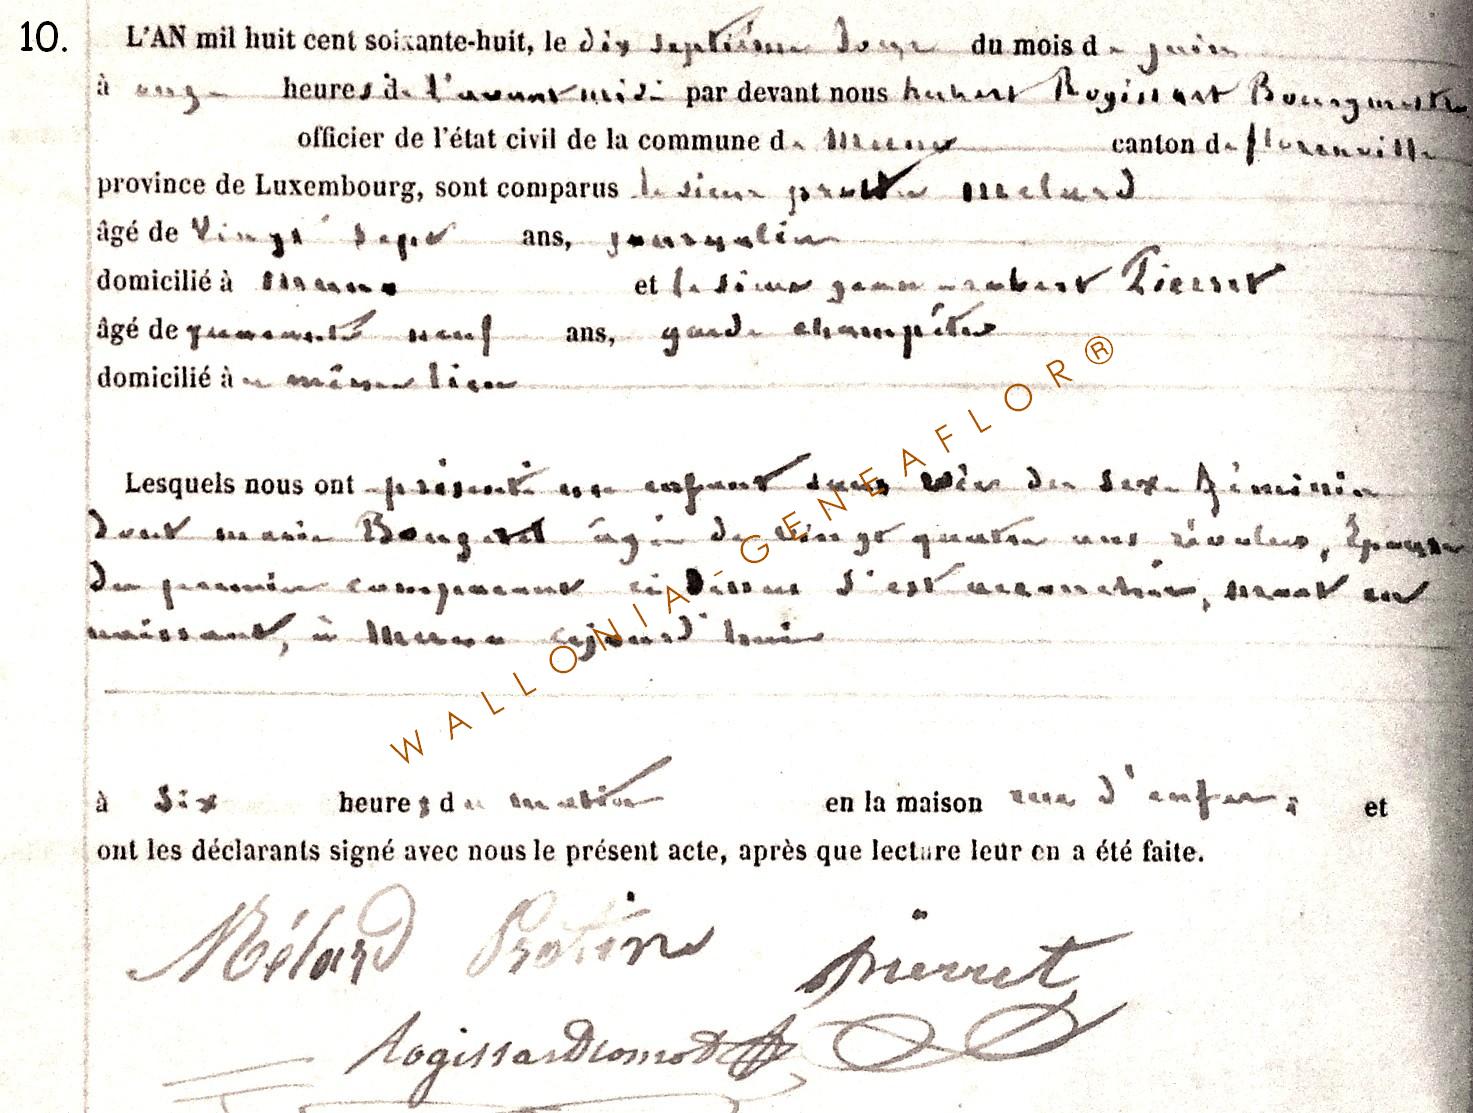 10.
L'AN mil huit cent soixante-huit, le dix septième jour du mois de juin
à onze heures de l'avant midi par devant nous hubert Rogissart Bourgmestre
officier de l'état civil de la commune de Muno canton de florenville
province de Luxembourg, sont comparus le sieur Melard
âgé de Vingt sept ans, journalier
domicilié à Muno et le sieur jean Pierret
âgé de quarante neuf ans, garde champêtre
domicilié à même lieu
Lesquels nous ont présenté un enfant sans vie du sexe féminin
dont marie âgée de Vingt quatre ans révolus, Épouse
du premier comparant ci dessus s'est accouchée, mort en
naissant, à Muno aujourd'hui
à Six heures du matin en la maison rue d'enfer ; et
ont les déclarants signé avec nous le présent acte, après que lecture leur en a été faite.
Mélard Protin pierret
WALLONIA-GENEAFLOR®